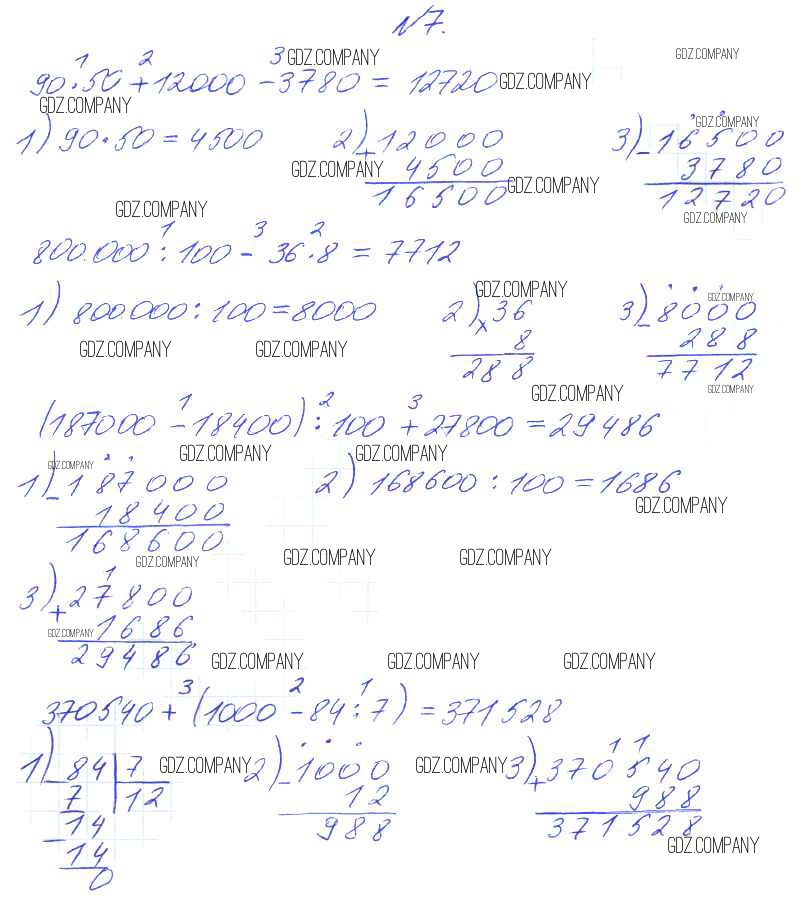 N7.
GDZ.COMPANY GDZ.COMPANY
90·50+12000-3780=12720 GDZ.COMPANY
1 2 3
GDZ.COMPANY GDZ.COMPANY
1) 90·50=4500 2) +12000 3) -16500
GDZ.COMPANY 4500 3780
16500 GDZ.COMPANY 12720
GDZ.COMPANY GDZ.COMPANY
1 3 2
800.000:100-36·8=7712
GDZ.COMPANY GDZ.COMPANY
1) 800.000:100=8000 2) ×36 3) -8000
GDZ.COMPANY GDZ.COMPANY 8 288
288 7712
GDZ.COMPANY GDZ.COMPANY
1 2 3
(187000-18400):100+27800=29486
GDZ.COMPANY GDZ.COMPANY GDZ.COMPANY
1) -187000 2) 168600:100=1686
18400 GDZ.COMPANY
168600
GDZ.COMPANY GDZ.COMPANY GDZ.COMPANY
1
3) +27800
GDZ.COMPANY 1686
29486 GDZ.COMPANY GDZ.COMPANY GDZ.COMPANY
3 2 1
370540+(1000-84:7)=371528
1 1
1) -84 7 GDZ.COMPANY 2) -1000 GDZ.COMPANY 3) +370540
7 12 12 988
-14 988 371528
14 GDZ.COMPANY
0